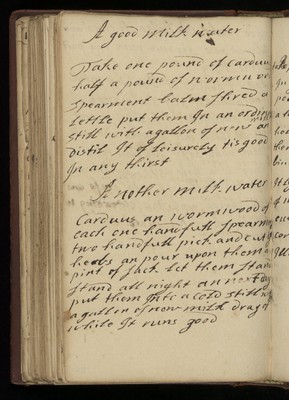 A good milk water
Take one pound of Carduu
half a pound of wormu or
spearment balm shred a
lettle put them In an ordin
still with a gallon of new
distil It of leisurely tis good
In any thirst
Another milk water
Carduus an wormwood of
each one handfull spearm
two handfull pick and cut
hearbs an pour upon them
pint of sack let them stan
stand all night an next day
put them Into a cold still
a gallon of new milk drag of
while It runs good